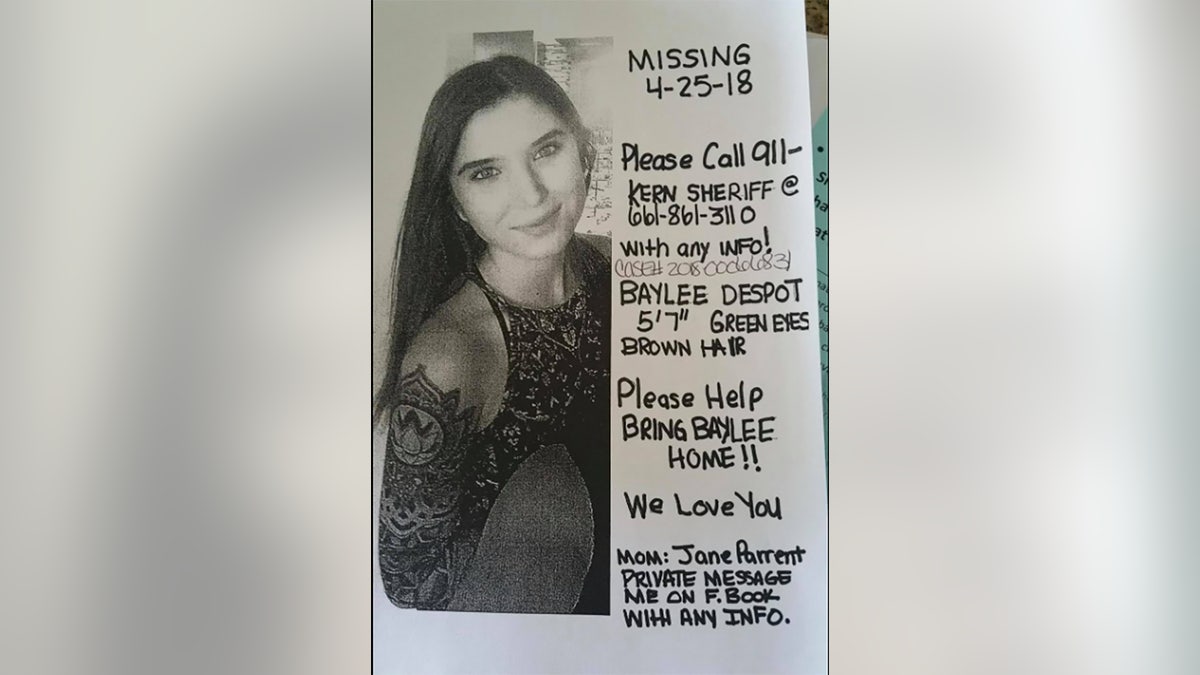 MISSING
4-25-18
Please Call 911-
KERN SHERIFF @
661-861-3110
with any INFO!
BAYLEE DESPOT
5'7" GREEN EYES
BROWN HAIR
Please Help
BRING BAYLEE
HOME!!
We Love You
MOM: Jane Parrent
PRIVATE MESSAGE
ME ON F.BOOK
WITH ANY INFO.